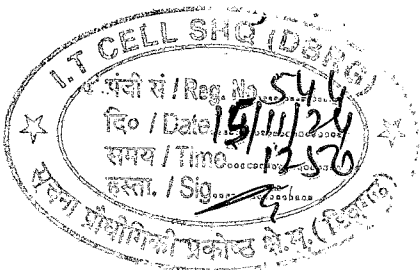 I.T CELL SHQ (DBRG)
पंजी सं / Reg. No. 544
दि० / Date 15/11/24
समय / Time 1250
हस्ता. / Sig
सूचना प्रौद्योगिकी प्रकोष्ठ क्षे.मु. (डिब्रूगढ़)